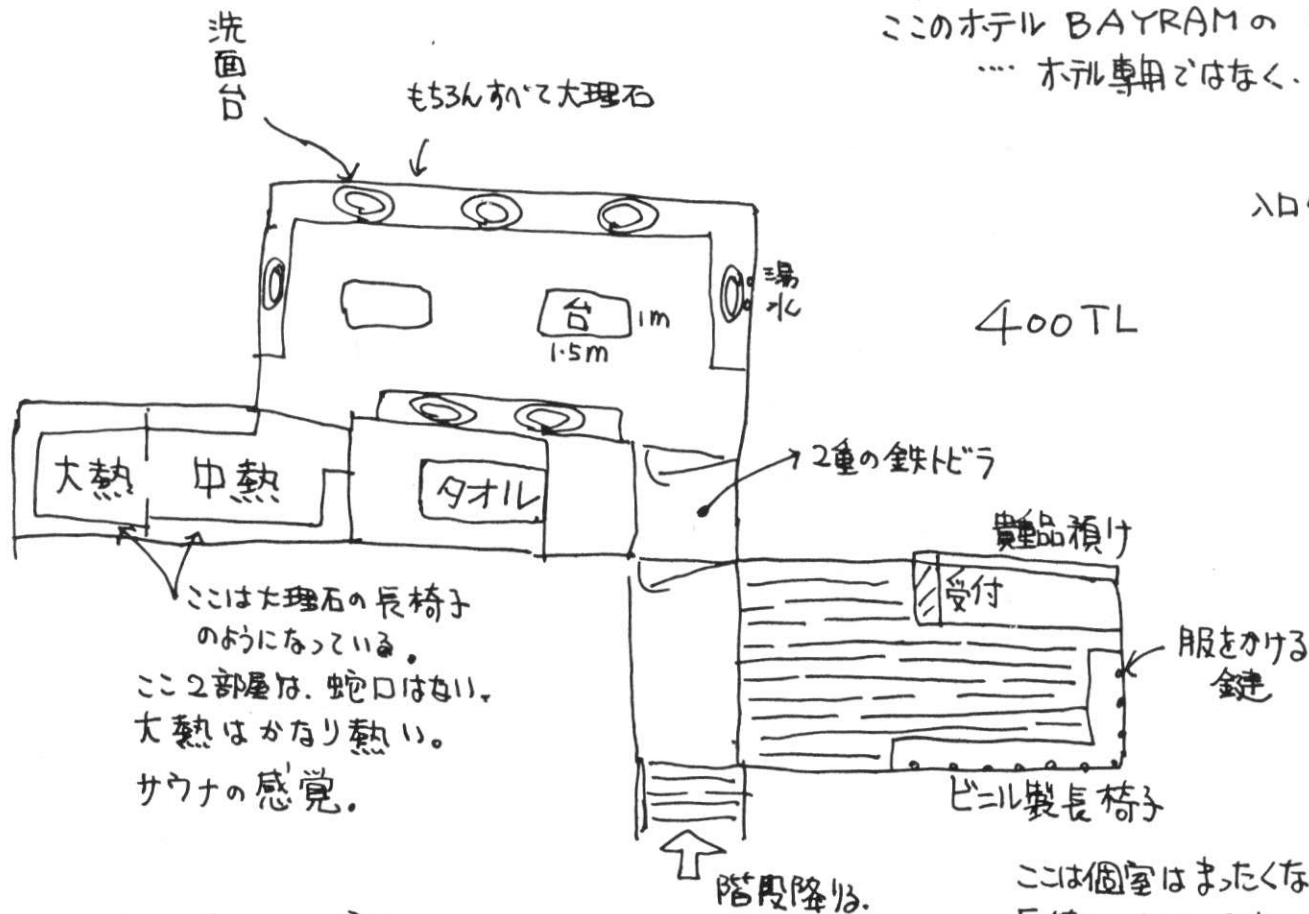 ここのホテル BAYRAMの
‥‥ ホテル専用ではなく、
洗面台
もちろんすべて大理石
入口
湯
水
台
1m
1.5m
400TL
大熱
中熱
タオル
2重の鉄トビラ
貴重品預け
受付
服をかける
鍵
ここは大理石の長椅子
のようになっている。
ここ2部屋は、蛇口はない。
大熱はかなり熱い。
サウナの感覚。
ビニル製長椅子
階段降りる。
ここは個室はまったくな